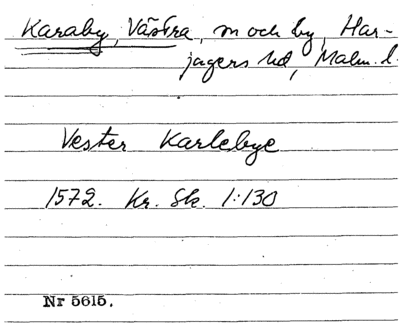 Karaby, Västra, m och by, Har-
jagers hd, Malm. l.
Vester Karlebye
1572. Kr. Sk. 1:130
Nr 5615.